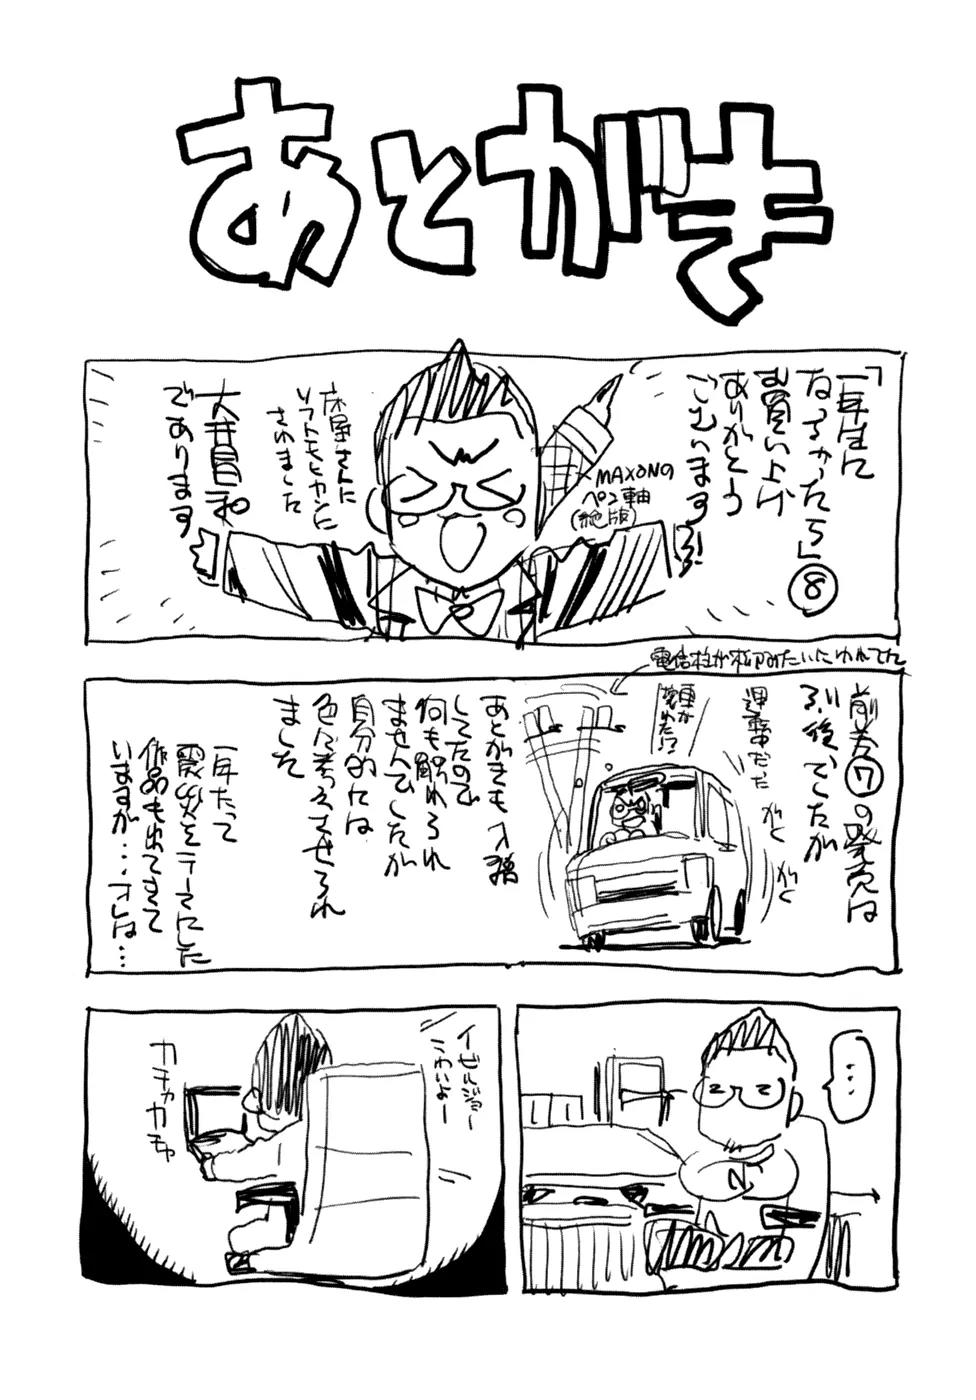 あとがき
「一年生に
なっちゃったら」⑧
お買い上げ
ありがとう
ございます!
MAXONの
ペン軸
(絶版)
床屋さんに
ソフトモヒカンに
されました
大井昌和
であります
電信柱が松のみたいにゆれてた
前巻⑦の発売は
震災後でしたが
運転中だった
車が
壊れた!?
ガク
ガク
ガク
あとがきも入稿
してたので
何も触れられ
ませんでしたが
自分的には
色々考えさせられ
ました
一年たって
震災をテーマにした
作品も出てきて
いますが…オレは…
…
イゼルジョー
こわいよー
カチャカチャ